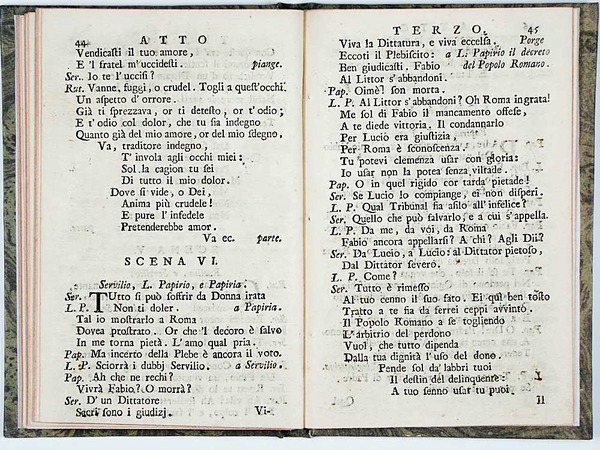 44 ATTO
Vendicasti il tuo amore,
E 'l fratel m'uccidesti. piange.
Ser. Io te l'uccisi?
Rut. Vanne, fuggi, o crudel. Togli a quest'occhi
Un aspetto d'orrore.
Già ti sprezzava, or ti detesto, or t'odio;
E t'odio col dolor, che tu sia indegno
Quanto già del mio amore, or del mio sdegno,
Va, traditore indegno,
T' invola agli occhi miei:
Sol la cagion tu sei
Di tutto il mio dolor.
Dove si vide, o Dei,
Anima più crudele!
E pure l' infedele
Pretenderebbe amor.
Va ec. parte.
SCENA VI.
Servilio, L. Papirio, e Papiria.
Ser. TUtto si può soffrir da Donna irata
L. P. Non ti doler. a Papiria.
Tal io mostrarlo a Roma
Dovea prostrato. Or che 'l decoro è salvo
In me torna pietà. L' amo qual pria.
Pap. Ma incerto della Plebe è ancora il voto.
L. P. Sciorrà i dubbj Servilio. a Servilio.
Pap. Ah che ne rechi?
Vivrà Fabio? O morrà?
Ser. D' un Dittatore
Sacri sono i giudizj. Vi-
TERZO. 45
Viva la Dittatura, e viva eccelsa. Porge
Eccoti il Plebiscito: a L. Papirio il decreto
Ben giudicasti. Fabio del Popolo Romano.
Al Littor s'abbandoni.
Pap. Oimè! son morta.
L. P. Al Littor s'abbandoni? Oh Roma ingrata!
Me sol di Fabio il mancamento offese,
A te diede vittoria. Il condannarlo
Per Lucio era giustizia,
Per Roma è sconoscenza.
Tu potevi clemenza usar con gloria:
Io usar non la potea senza viltade.
Pap. O in quel rigido cor tarda pietade!
Ser. Se Lucio lo compiange, ei non disperi.
L. P. Qual Tribunal fia asilo all'infelice?
Ser. Quello che può salvarlo, e a cui s'appella.
L. P. Da me, da voi, da Roma
Fabio ancora appellarsi? A chi? Agli Dii?
Ser. Da Lucio, a Lucio: al Dittator pietoso,
Dal Dittator severo.
L. P. Come?
Ser. Tutto è rimesso
Al tuo cenno il suo fato. Ei qui ben tosto
Tratto a te fia da ferrei ceppi avvinto.
Il Popolo Romano a se togliendo
L'arbitrio del perdono
Vuol, che tutto dipenda
Dalla tua dignità l'uso del dono.
Pende sol da' labbri tuoi
Il destin del delinquente:
A tuo senno usar tu puoi.
Il